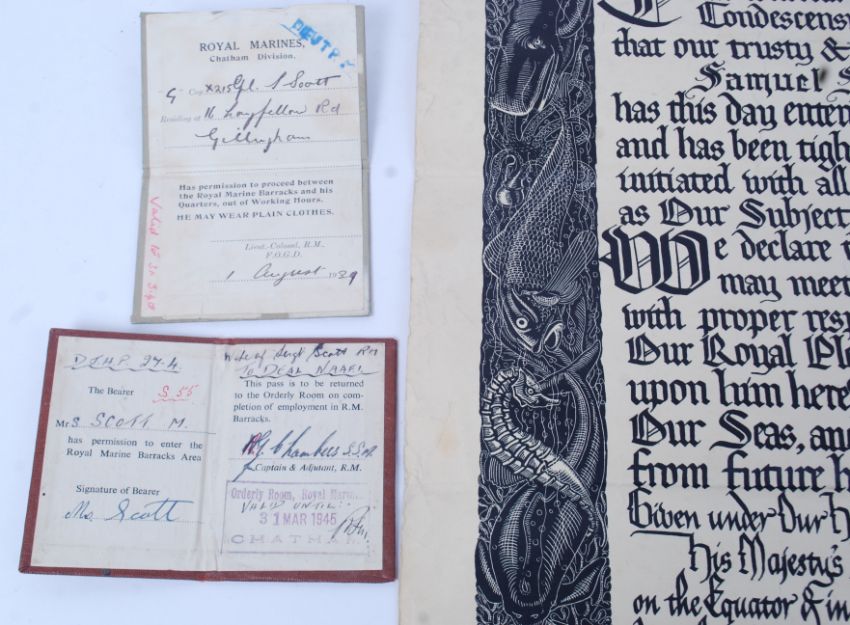 ROYAL MARINES,
Chatham Division.
Scott
Residing at 11 Longfellow Rd
Gillingham
Has permission to proceed between
the Royal Marine Barracks and his
Quarters, out of Working Hours.
HE MAY WEAR PLAIN CLOTHES.
Lieut.-Colonel, R.M.,
F.O.G.D.
1 August 1939
The Bearer S 55
Mrs SCOTT M.
has permission to enter the
Royal Marine Barracks Area
Signature of Bearer
Scott
Wife of Sergt Scott RM
TO DEAL
This pass is to be returned
to the Orderly Room on com-
pletion of employment in R.M.
Barracks.
Chambers
Captain & Adjutant, R.M.
Orderly Room, Royal Marin
VALID UNTIL:-
31 MAR 1945
CHATHAM
Condescens
that our trusty &
Samuel S
has this day enter
and has been tigh
initiated with all
as Our Subject
We declare
may meet
with proper resp
Our Royal Pl
upon him here
Our Seas, an
from future h
Given under Our H
His Majesty's
on the Equator & in